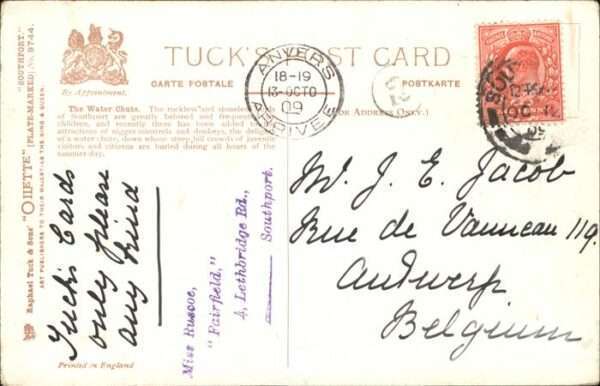 TUCK'S POST CARD
By Appointment.
CARTE POSTALE
POSTKARTE
(FOR ADDRESS ONLY.)
ANVERS
18-19
13 OCTO
09
ARRIVEE
The Water Chute. The
of Southport are greatly beloved and
children, and recently there has been added
attractions of nigger minstrels and donkeys, the delight
of a water chute, down whose steep hill crowds of juvenile
visitors and citizens are buried during all hours of the
summer day.
"SOUTHPORT." No. 9744.
Raphael Tuck & Sons' "OILETTE" [PLATE-MARKED]
ART PUBLISHERS TO THEIR MAJESTIES THE KING & QUEEN.
Tuck's Cards
only please
any kind
Miss Ruscoe,
"Fairfield,"
4, Lethbridge Rd.,
Southport.
J. E. Jacob
Rue de Vanneau 119.
Antwerp
Belgium
Printed in England